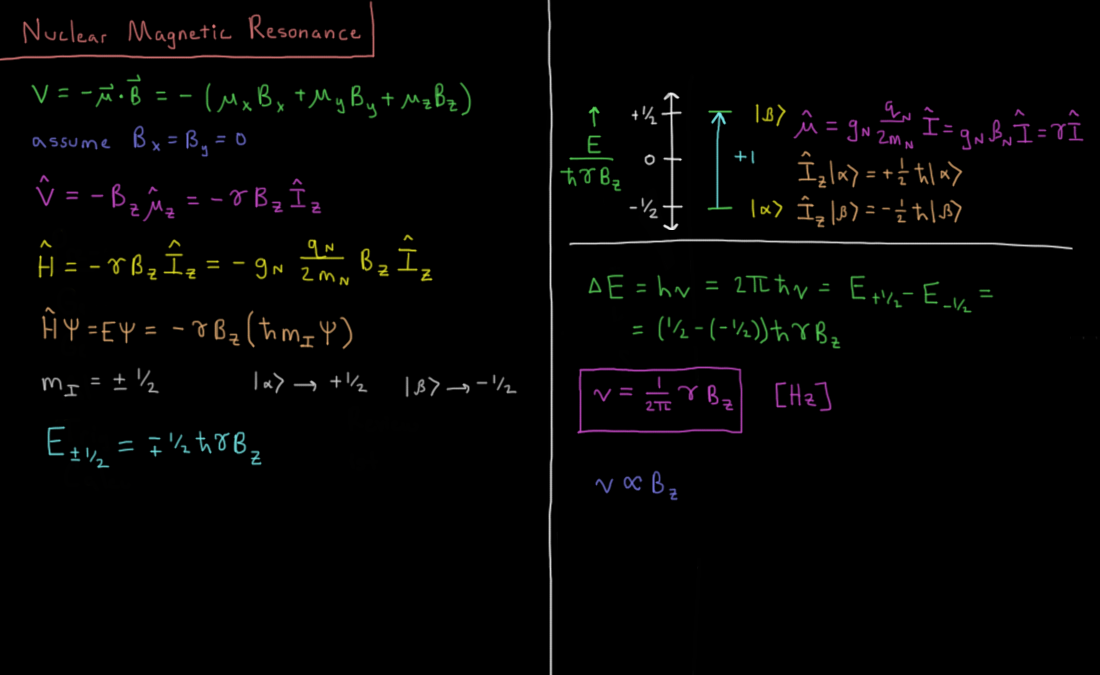 Nuclear Magnetic Resonance
V = -μ⃗·B⃗ = -(μₓBₓ + μᵧBᵧ + μ_zB_z)
assume Bₓ = Bᵧ = 0
V̂ = -B_z μ̂_z = -γB_z Î_z
Ĥ = -γB_z Î_z = -g_N q_N/2m_N B_z Î_z
ĤΨ = EΨ = -γB_z(ħm_IΨ)
m_I = ± 1/2 |α⟩ → +1/2 |β⟩ → -1/2
E_±1/2 = ∓1/2 ħγB_z
↑ E/ħγB_z
+1/2 |β⟩
0 +1
-1/2 |α⟩
μ̂ = g_N q_N/2m_N Î = g_N β_N Î = γÎ
Î_z|α⟩ = +1/2 ħ|α⟩
Î_z|β⟩ = -1/2 ħ|β⟩
ΔE = hν = 2πħν = E_+1/2 - E_-1/2 =
= (1/2 - (-1/2))ħγB_z
ν = 1/2π γB_z [Hz]
ν ∝ B_z